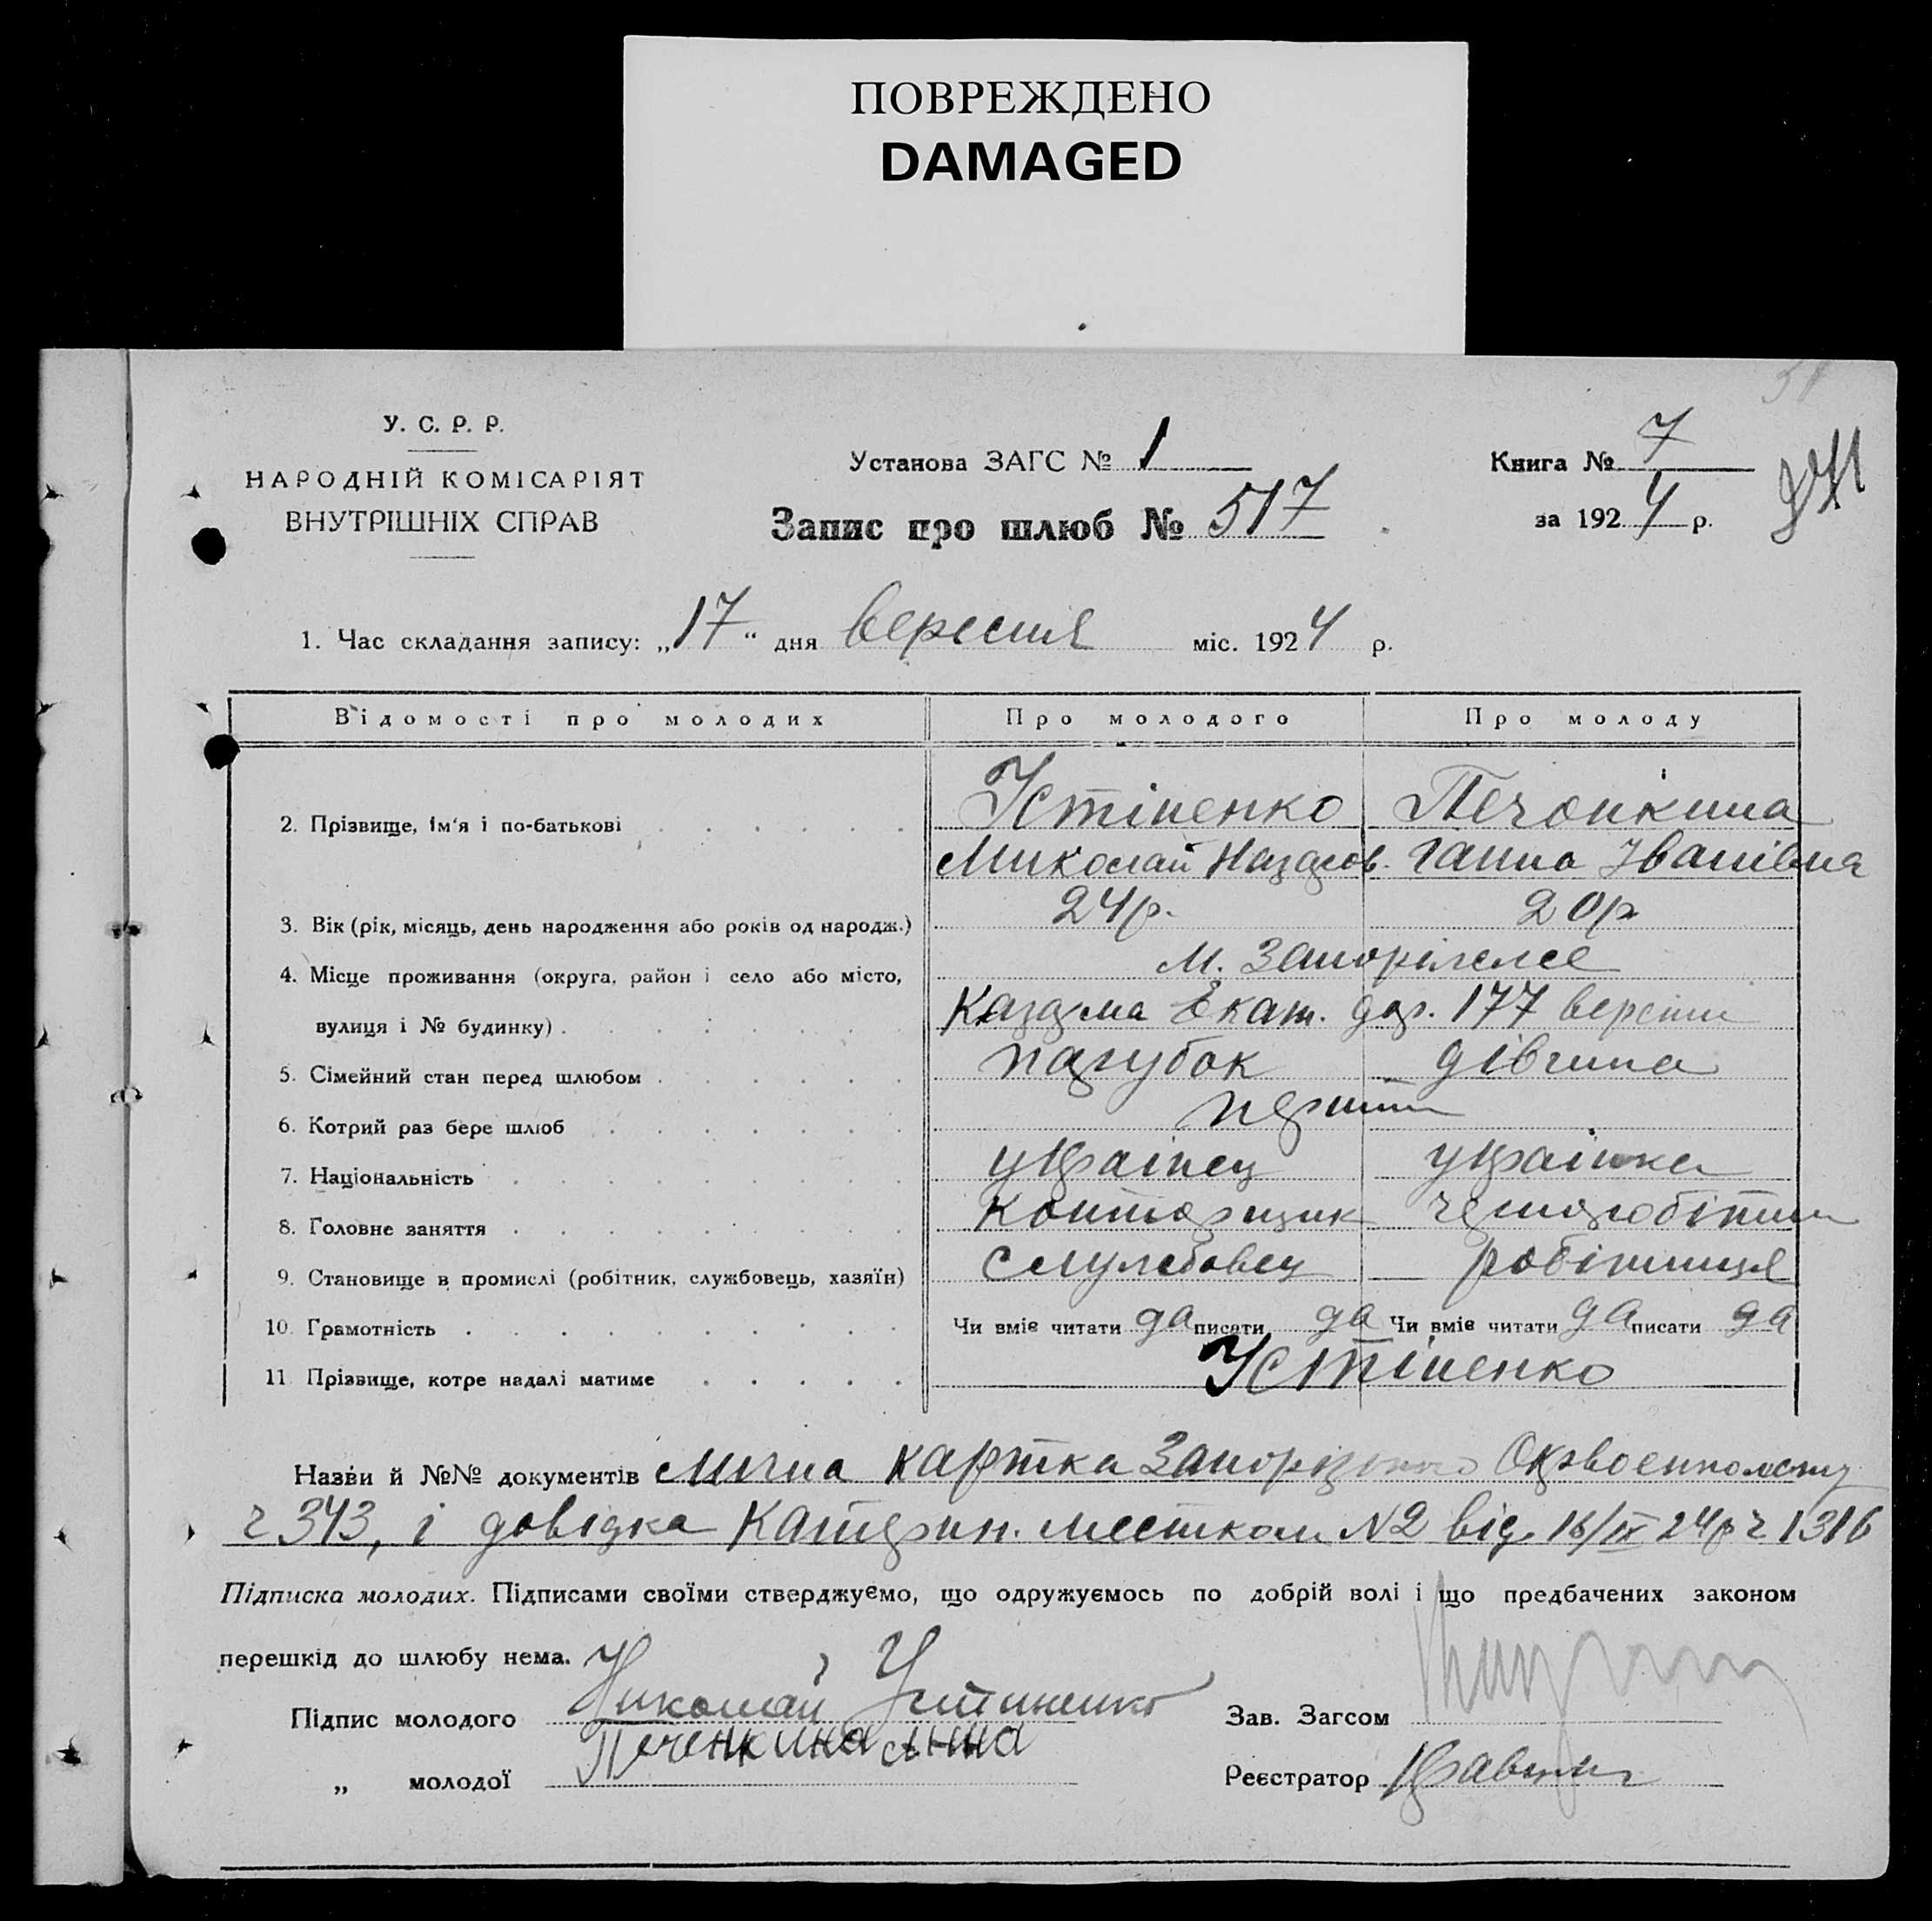 ПОВРЕЖДЕНО
DAMAGED
У. С. Р. Р.
НАРОДНІЙ КОМІСАРІЯТ
ВНУТРІШНІХ СПРАВ
Установа ЗАГС № 1
Запис про шлюб № 517
Книга № 7
за 1924 р.
1. Час складання запису: „17" дня вересня міс. 1924 р.
Відомості про молодих Про молодого Про молоду
2. Прізвище, ім'я і по-батькові Устіненко Печонкіна
Миколай Назаров. Ганна Іванівна
3. Вік (рік, місяць, день народження або років од народж.) 24 р. 20 р.
4. Місце проживання (округа, район і село або місто, м. Запоріжжє
вулиця і № будинку) Казарма Екат. дор. 177 версти
5. Сімейний стан перед шлюбом парубок дівчина
6. Котрий раз бере шлюб перший
7. Національність українец українка
8. Головне заняття конторщик чернороб
9. Становище в промислі (робітник, службовець, хазяїн) службовец робітниця
10. Грамотність Чи вміє читати да писати да Чи вміє читати да писати да
11. Прізвище, котре надалі матиме Устіненко
Назви й №№ документів Лична картка Запорізького Окрвоенкомату
ч 343, і довідка Катерин. местком N2 від 16/IX 24р ч 1316
Підписка молодих. Підписами своїми стверджуємо, що одружуємось по добрій волі і що предбачених законом
перешкід до шлюбу нема.
Підпис молодого Николай Устиненко Зав. Загсом
„ молодої Печенкина Анна Реєстратор